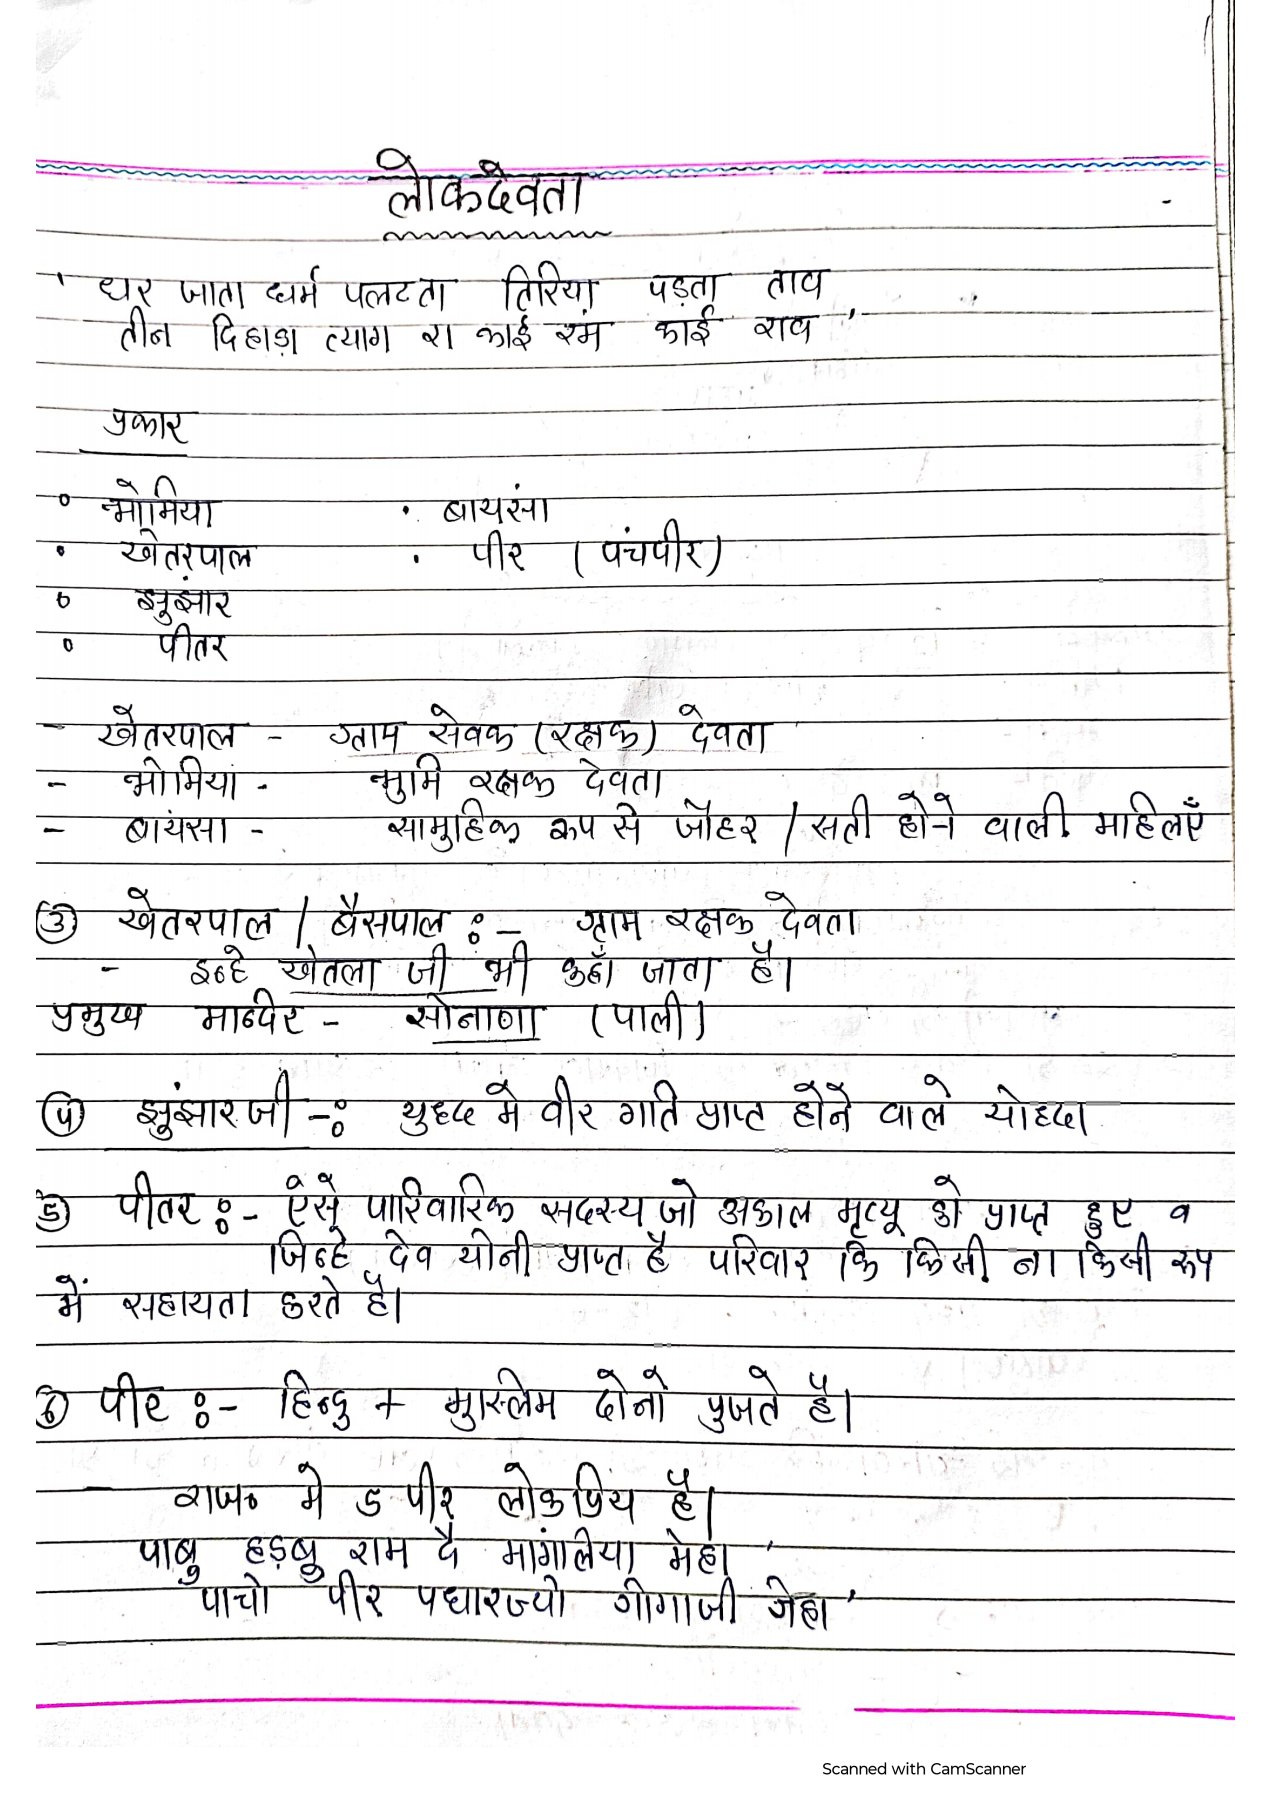 लोकदेवता
' धर जाता धर्म पलटता तिरिया पड़ता ताव
तीन दिहाड़ा त्याग रा काई रंम काई राव '
प्रकार
° भोमिया · बायसां
• खेतरपाल · पीर (पंचपीर)
° झुंझार
° पीतर
- खेतरपाल - ग्राम सेवक (रक्षक) देवता
- भोमिया - भुमि रक्षक देवता
- बायंसा - सामुहिक रूप से जौहर / सती होने वाली महिलाएँ
③ खेतरपाल / बैसपाल :- ग्राम रक्षक देवता
- इन्हे खेतला जी भी कहाँ जाता है।
प्रमुख मन्दिर - सोनाणा (पाली)
④ झुंझार जी -: युद्ध मे वीर गति प्राप्त होने वाले योद्धा
⑤ पीतर :- ऐसे पारिवारिक सदस्य जो अकाल मृत्यू को प्राप्त हुए व
जिन्हे देव योनी प्राप्त है परिवार कि किसी ना किसी रूप
में सहायता करते है।
⑥ पीर :- हिन्दु + मुस्लिम दोनो पुजते है।
- राज० मे 5 पीर लोकप्रिय है।
पाबु हड़बु राम दै मांगलिया मेहा '
पाचो पीर पधारज्यो गोगाजी जेहा '
Scanned with CamScanner